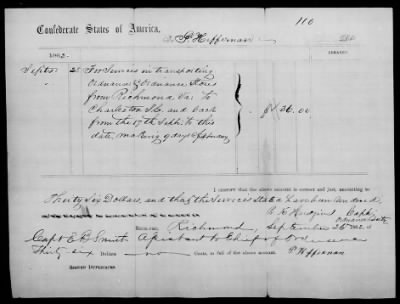 110
Confederate States of America,
To P. Heffernan Dr.
DOLLARS.
1862.
Septr 25 For Services in transporting
" Ordnance & Ordnance Stores
from Richmond Va. to
Charleston S.C. and back
from the 17th Septr. to this
date, making 9 days @ $4 per day $36.00
I CERTIFY that the above account is correct and just, amounting to
Thirty Six Dollars, and that the Services
RECEIVED, Richmond, September 25 1862
Capt E. B. Smith Assistant to Chief of Ordnance
Thirty six Dollars no Cents, in full of the above account.
SIGNED DUPLICATES. P. Heffernan